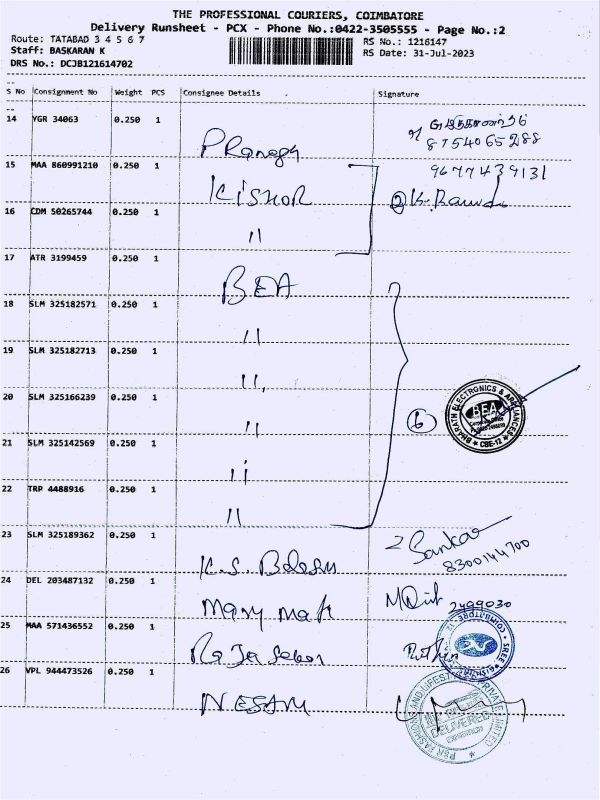 THE PROFESSIONAL COURIERS, COIMBATORE
Delivery Runsheet - PCX - Phone No.:0422-3505555 - Page No.:2
Route: TATABAD 3 4 5 6 7
RS No.: 1216147
Staff: BASKARAN K
RS Date: 31-Jul-2023
DRS No.: DCJB121614702
S No Consignment No Weight PCS Consignee Details Signature
14 YGR 34063 0.250 1
8754065288
15 MAA 860991210 0.250 1
9677439131
Kishor
16 CDM 50265744 0.250 1
"
17 ATR 3199459 0.250 1
BEA
18 SLM 325182571 0.250 1
"
19 SLM 325182713 0.250 1
"
20 SLM 325166239 0.250 1
"
6
BHARATH ELECTRONICS & APPLIANCES
BEA
* CBE-12 *
21 SLM 325142569 0.250 1
"
22 TRP 4488916 0.250 1
"
23 SLM 325189362 0.250 1
Sankar
8300144700
K.S.
24 DEL 203487132 0.250 1
Mary
2499030
25 MAA 571436552 0.250 1
COIMBATORE
SREE
Rajasekar
26 VPL 944473526 0.250 1
NESAM
DELIVERED
PRIVATE LIMITED